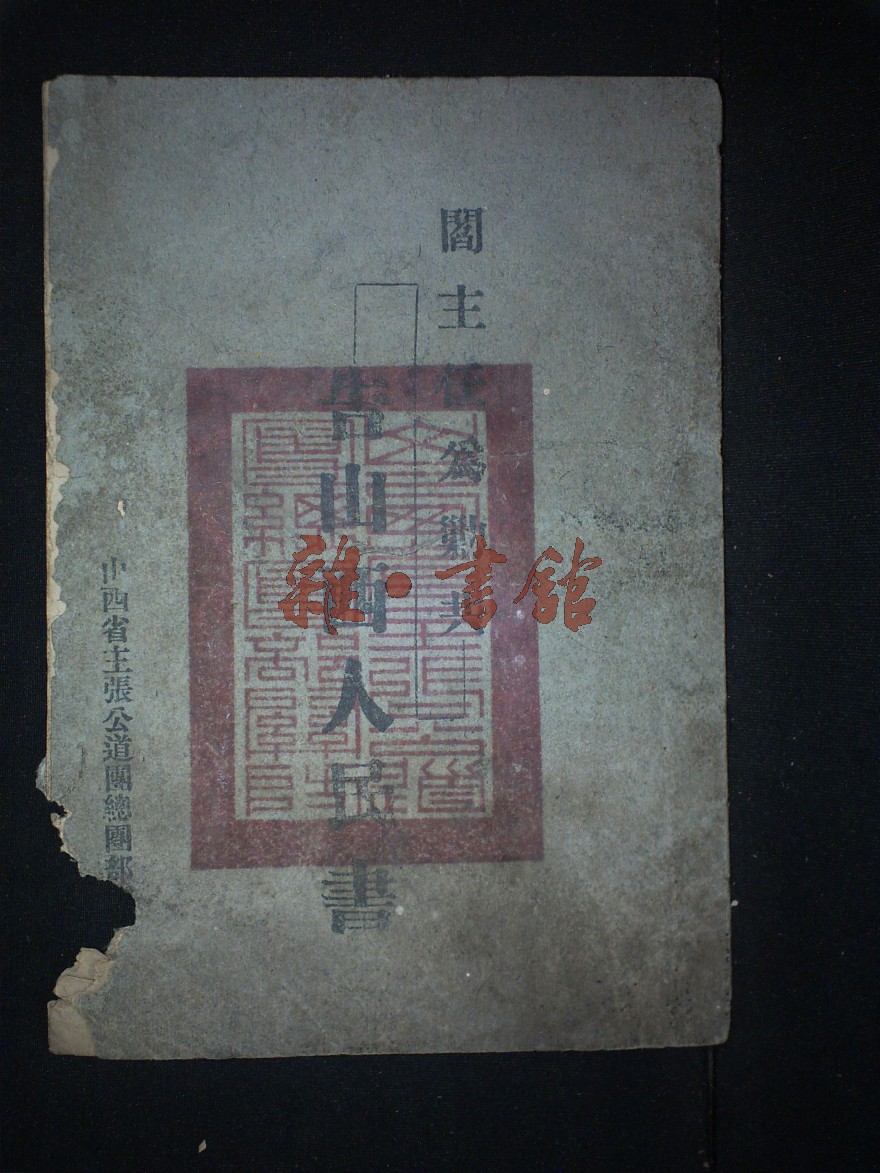 閻主任為勦共
告山西人民書
山西省主張公道團總團部
雜·書館